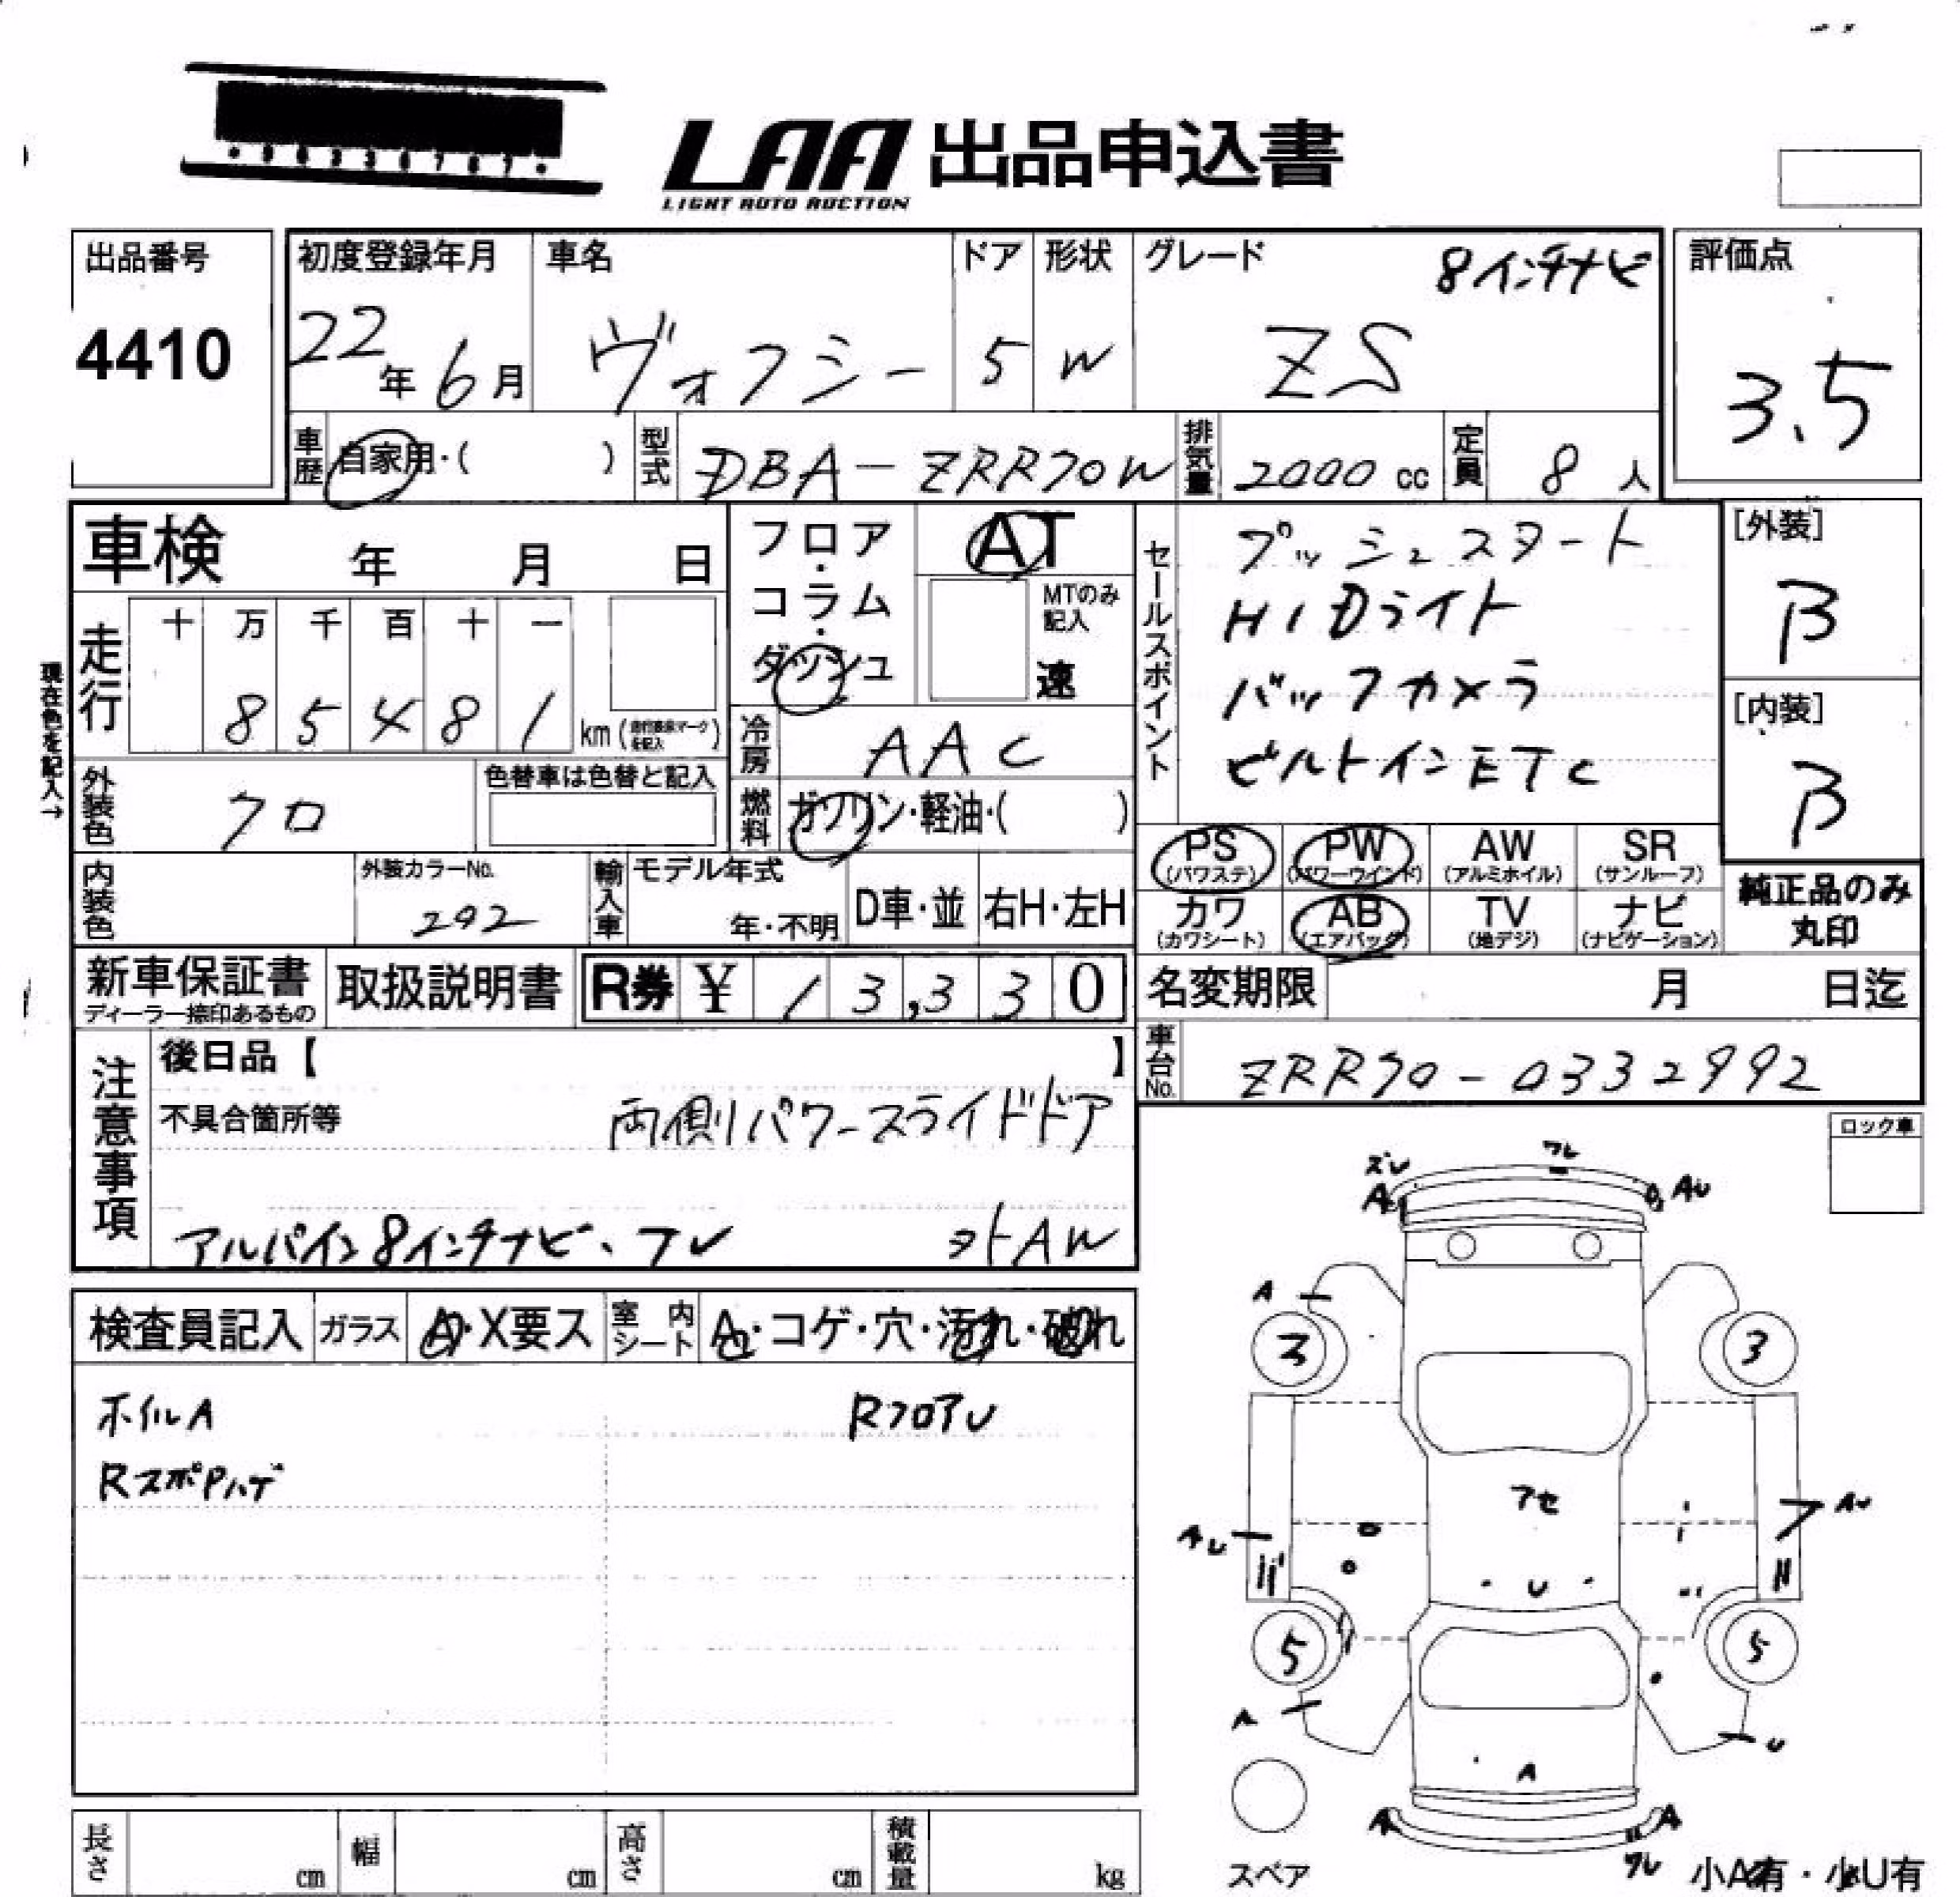 LAA 出品申込書
LIGHT AUTO AUCTION
出品番号
4410
初度登録年月
22年6月
車名
ヴォクシー
ドア
5
形状
W
グレード
8インチナビ
ZS
評価点
3.5
車歴 自家用・( )
型式 DBA-ZRR70W
排気量 2000 cc
定員 8 人
車検 年 月 日
走行
十 万 千 百 十 一
8 5 4 8 1 km (走行要保マークを記入)
現在色を記入→
フロア・コラム・ダッシュ
AT
MTのみ記入
速
冷房 AAC
燃料 ガソリン・軽油・( )
セールスポイント
プッシュスタート
HIDライト
バックカメラ
ビルトインETC
[外装]
B
[内装]
B
外装色 クロ
色替車は色替と記入
内装色
外装カラーNo.
292
輸入車
モデル年式
年・不明
D車・並
右H・左H
PS (パワステ)
PW (パワーウインド)
AW (アルミホイル)
SR (サンルーフ)
カワ (カワシート)
AB (エアバッグ)
TV (地デジ)
ナビ (ナビゲーション)
純正品のみ丸印
新車保証書
ディーラー捺印あるもの
取扱説明書
R券 ¥ 13,330
名変期限 月 日迄
車台No. ZRR70-0332992
注意事項
後日品【 】
不具合箇所等
両側パワースライドドア
アルパイン8インチナビ、フレ
外AW
ロック車
検査員記入
ガラス A・X要ス
室内シート A・コゲ・穴・汚れ・破れ
ホイルA
RフロアU
RスポPハゲ
ズレ
ワレ
A
AU
A
3
3
アセ
AU
AU
U
5
5
A
U
A
A
A
ワレ
スペア
小A有・小U有
長さ cm
幅 cm
高さ cm
積載量 kg